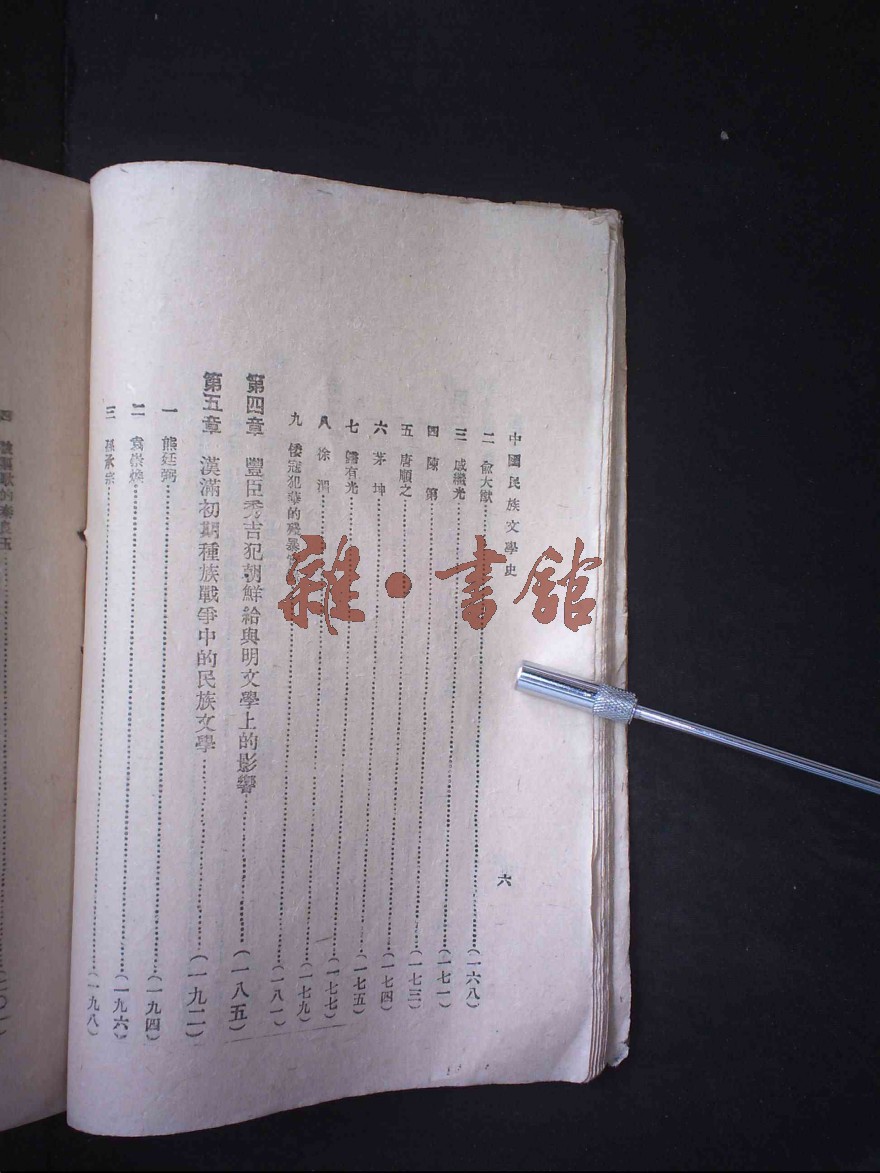 中國民族文學史
六
二 俞大猷(一六八)
三 戚繼光(一七一)
四 陳第(一七三)
五 唐順之(一七四)
六 茅坤(一七五)
七 歸有光(一七七)
八 徐渭(一七九)
九 倭寇犯華的殘暴(一八一)
第四章 豐臣秀吉犯朝鮮給與明文學上的影響(一八五)
第五章 漢滿初期種族戰爭中的民族文學(一九二)
一 熊廷弼(一九四)
二 袁崇煥(一九六)
三 孫承宗(一九八)
四 的秦良玉
雜·書館